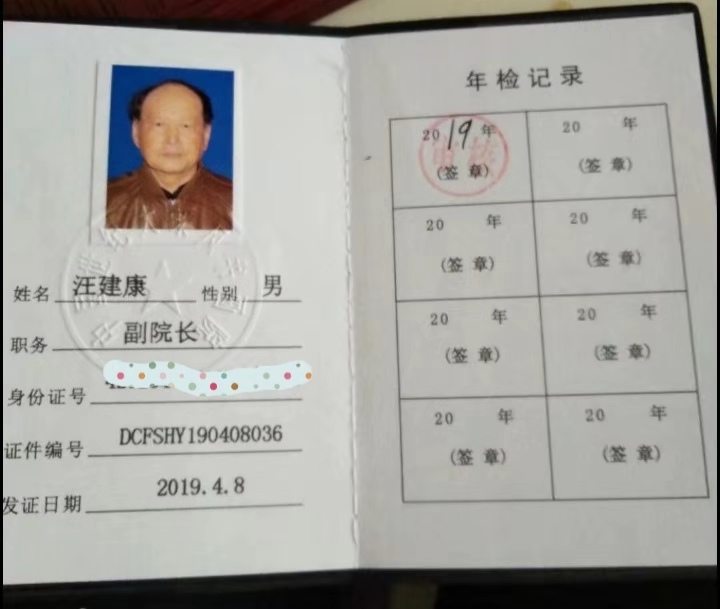 姓名 汪建康 性别 男
职务 副院长
身份证号
证件编号 DCFSHY190408036
发证日期 2019.4.8
年检记录
2019年 20 年
(签 章) (签 章)
20 年 20 年
(签 章) (签 章)
20 年 20 年
(签 章) (签 章)
20 年 20 年
(签 章) (签 章)